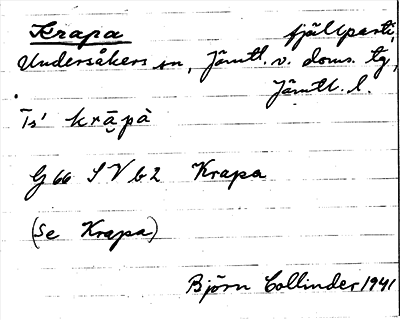 Krapa fjällparti,
Undersåkers sn, Jämtl. v. doms. tg,
Jämtl. l.
Ts' krā̱pà
G 66 S V b 2 Krapa
(se Krapa)
Björn Collinder 1941